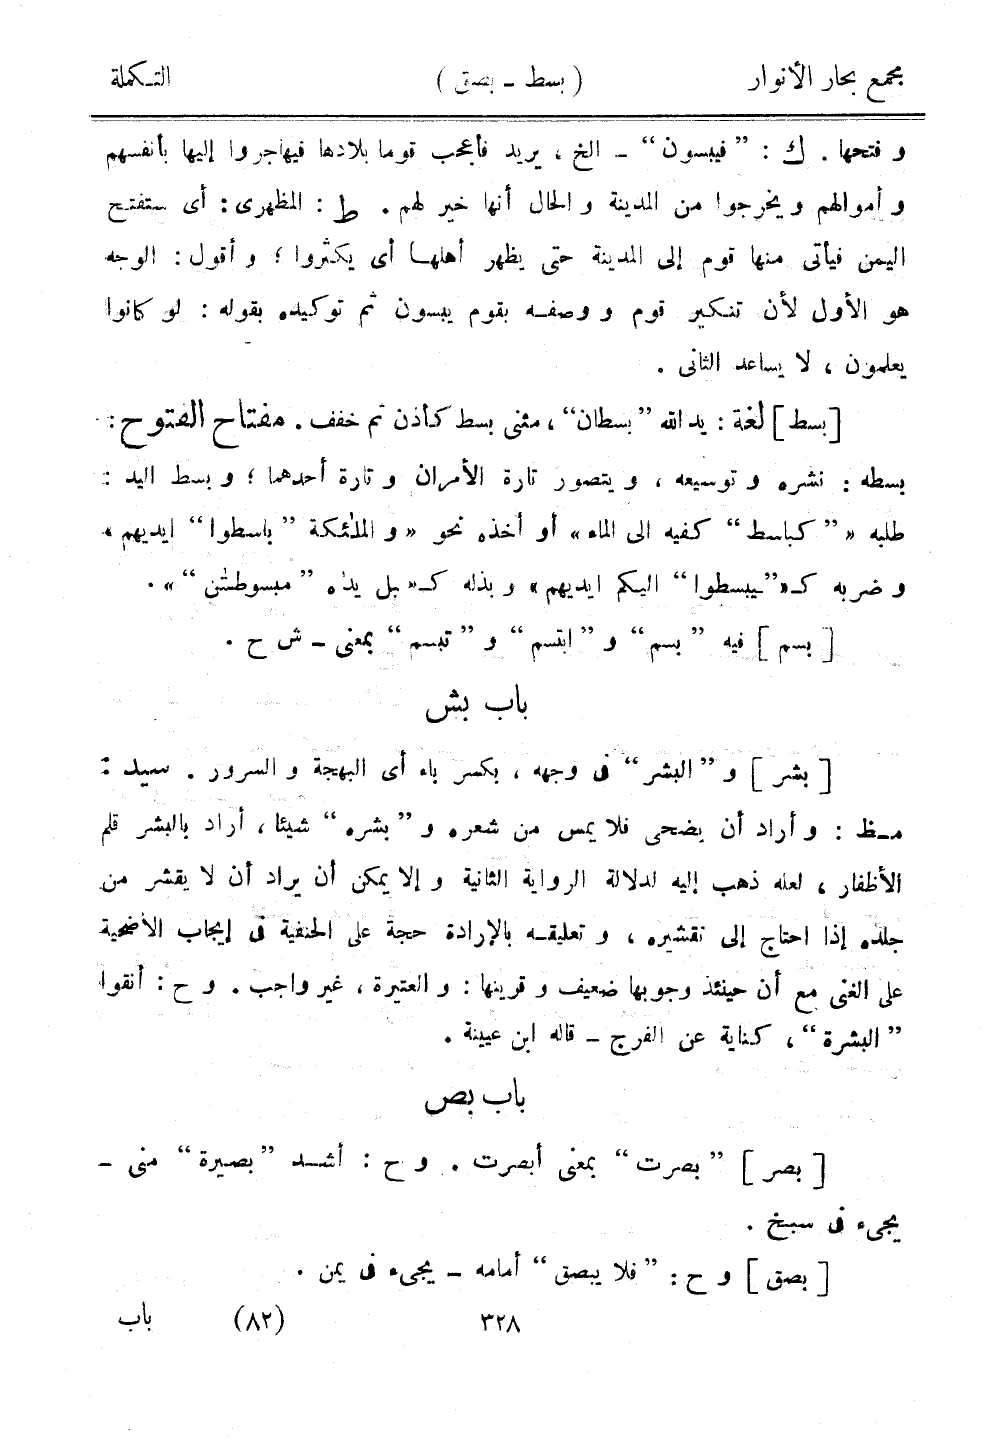 مجمع بحار الأنوار ( بسط ـ بصق ) التـكملة
و فتحها . ك : ”فيبسون“ ـ الخ ، يريد فأعجب قوما بلادها فيهاجروا إليها بأنفسهم
و أموالهم و يخرجوا من المدينة و الحال أنها خير لهم . ط : المظهرى : أى ستفتح
اليمن فيأتى منها قوم إلى المدينة حتى يظهر أهلهـا أى يكثروا ؛ و أقول : الوجه
هو الأول لأن تنـكير قوم و وصفـه بقوم يبسون ثم توكيده بقوله : لو كانوا
يعلمون ، لا يساعد الثانى .
[بسط] لغة : يد الله ”بسطان“ ، مثنى بسط كأذن ثم خفف . مفتاح الفتوح :
بسطه : نشره و توسيعه ، و يتصور تارة الأمران و تارة أحدهما ؛ و بسط اليد :
طلبه « ”كباسط“ كفيه الى الماء » أو أخذه نحو « و الملٰئكة ”باسطوا“ ايديهم »
و ضربه كـ«”يبسطوا“ اليكم ايديهم » و بذله كـ« بل يدٰه ”مبسوطتٰن“ » .
[ بسم ] فيه ”بسم“ و ”ابتسم“ و ”تبسم“ بمعنى ـ ش ح .
باب بش
[ بشر ] و ”البشر“ فى وجهه ، بكسر باء أى البهجة و السرور . سيد :
مـظ : و أراد أن يضحى فلا يمس من شعره و ”بشره“ شيئا ، أراد بالبشر قلم
الأظفار ، لعله ذهب إليه لدلالة الرواية الثانية و إلا يمكن أن يراد أن لا يقشر من
جلده إذا احتاج إلى تقشيره ، و تعليقـه بالإرادة حجة على الحنفية فى إيجاب الأضحية
على الغنى مع أن حينئذ وجوبها ضعيف و قرينها : و العتيرة ، غير واجب . و ح : أنقوا
”البشرة“ ، كناية عن الفرج ـ قاله ابن عيينة .
باب بص
[ بصر ] ”بصرت“ بمعنى أبصرت . و ح : أشـد ”بصيرة“ منى ـ
يجىء فى سبخ .
[ بصق ] و ح : ”فلا يبصق“ أمامه ـ يجىء فى يمن .
٣٢٨ (٨٢) باب